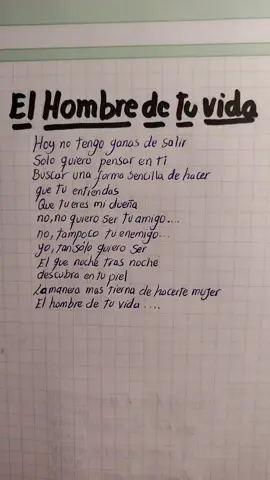 El Hombre de tu vida
Hoy no tengo ganas de salir
Solo quiero pensar en ti
Buscar una forma sencilla de hacer
que tu entiendas
Que tu eres mi dueña
no, no quiero ser tu amigo....
no, tampoco tu enemigo...
yo, tan solo quiero ser
El que noche tras noche
descubra en tu piel
La manera mas tierna de hacerte mujer
El hombre de tu vida ....